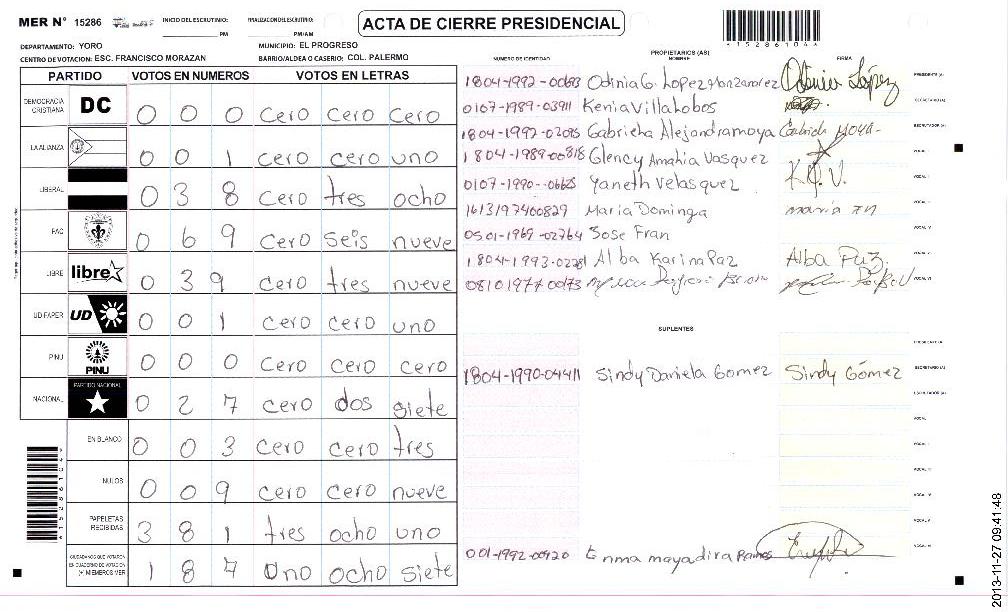 MER N° 15286
INICIO DEL ESCRUTINIO: PM
FINALIZACION DEL ESCRUTINIO: PM/AM
ACTA DE CIERRE PRESIDENCIAL
*15286104*
DEPARTAMENTO: YORO
MUNICIPIO: EL PROGRESO
CENTRO DE VOTACION: ESC. FRANCISCO MORAZAN
BARRIO/ALDEA O CASERIO: COL. PALERMO
PARTIDO VOTOS EN NUMEROS VOTOS EN LETRAS
DEMOCRACIA CRISTIANA DC 0 0 0 cero cero cero
LA ALIANZA 0 0 1 cero cero uno
LIBERAL 0 3 8 cero tres ocho
PAC 0 6 9 cero seis nueve
LIBRE libre 0 3 9 cero tres nueve
UD FAPER UD 0 0 1 cero cero uno
PINU PINU 0 0 0 cero cero cero
NACIONAL PARTIDO NACIONAL 0 2 7 cero dos siete
EN BLANCO 0 0 3 cero cero tres
NULOS 0 0 9 cero cero nueve
PAPELETAS RECIBIDAS 3 8 1 tres ocho uno
CIUDADANOS QUE VOTARON EN CUADERNO DE VOTACION (+) MIEMBROS MER 1 8 7 uno ocho siete
NUMERO DE IDENTIDAD
PROPIETARIOS (AS)
NOMBRE
FIRMA
Odinia G. Lopez PRESIDENTE (A)
0107-1989-03911 Kenia Villalobos SECRETARIO (A)
Gabriela Alejandra moya Gabriela Moya ESCRUTADOR (A)
1804-1989-00818 Glency Amahia Vasquez VOCAL I
Yaneth Velasquez K.Q.V. VOCAL II
1613197400829 Maria Dominga VOCAL III
0501-1969-02764 Jose Fran VOCAL IV
Alba Karina Paz Alba Paz. VOCAL V
VOCAL VI
SUPLENTES
PRESIDENTE (A)
1804-1990-04411 Sindy Daniela Gomez Sindy Gómez SECRETARIO (A)
ESCRUTADOR (A)
VOCAL I
VOCAL II
VOCAL III
VOCAL IV
VOCAL V
001-1992-00920 Enma mayadira Ramos VOCAL VI
2013-11-27 09:41:48